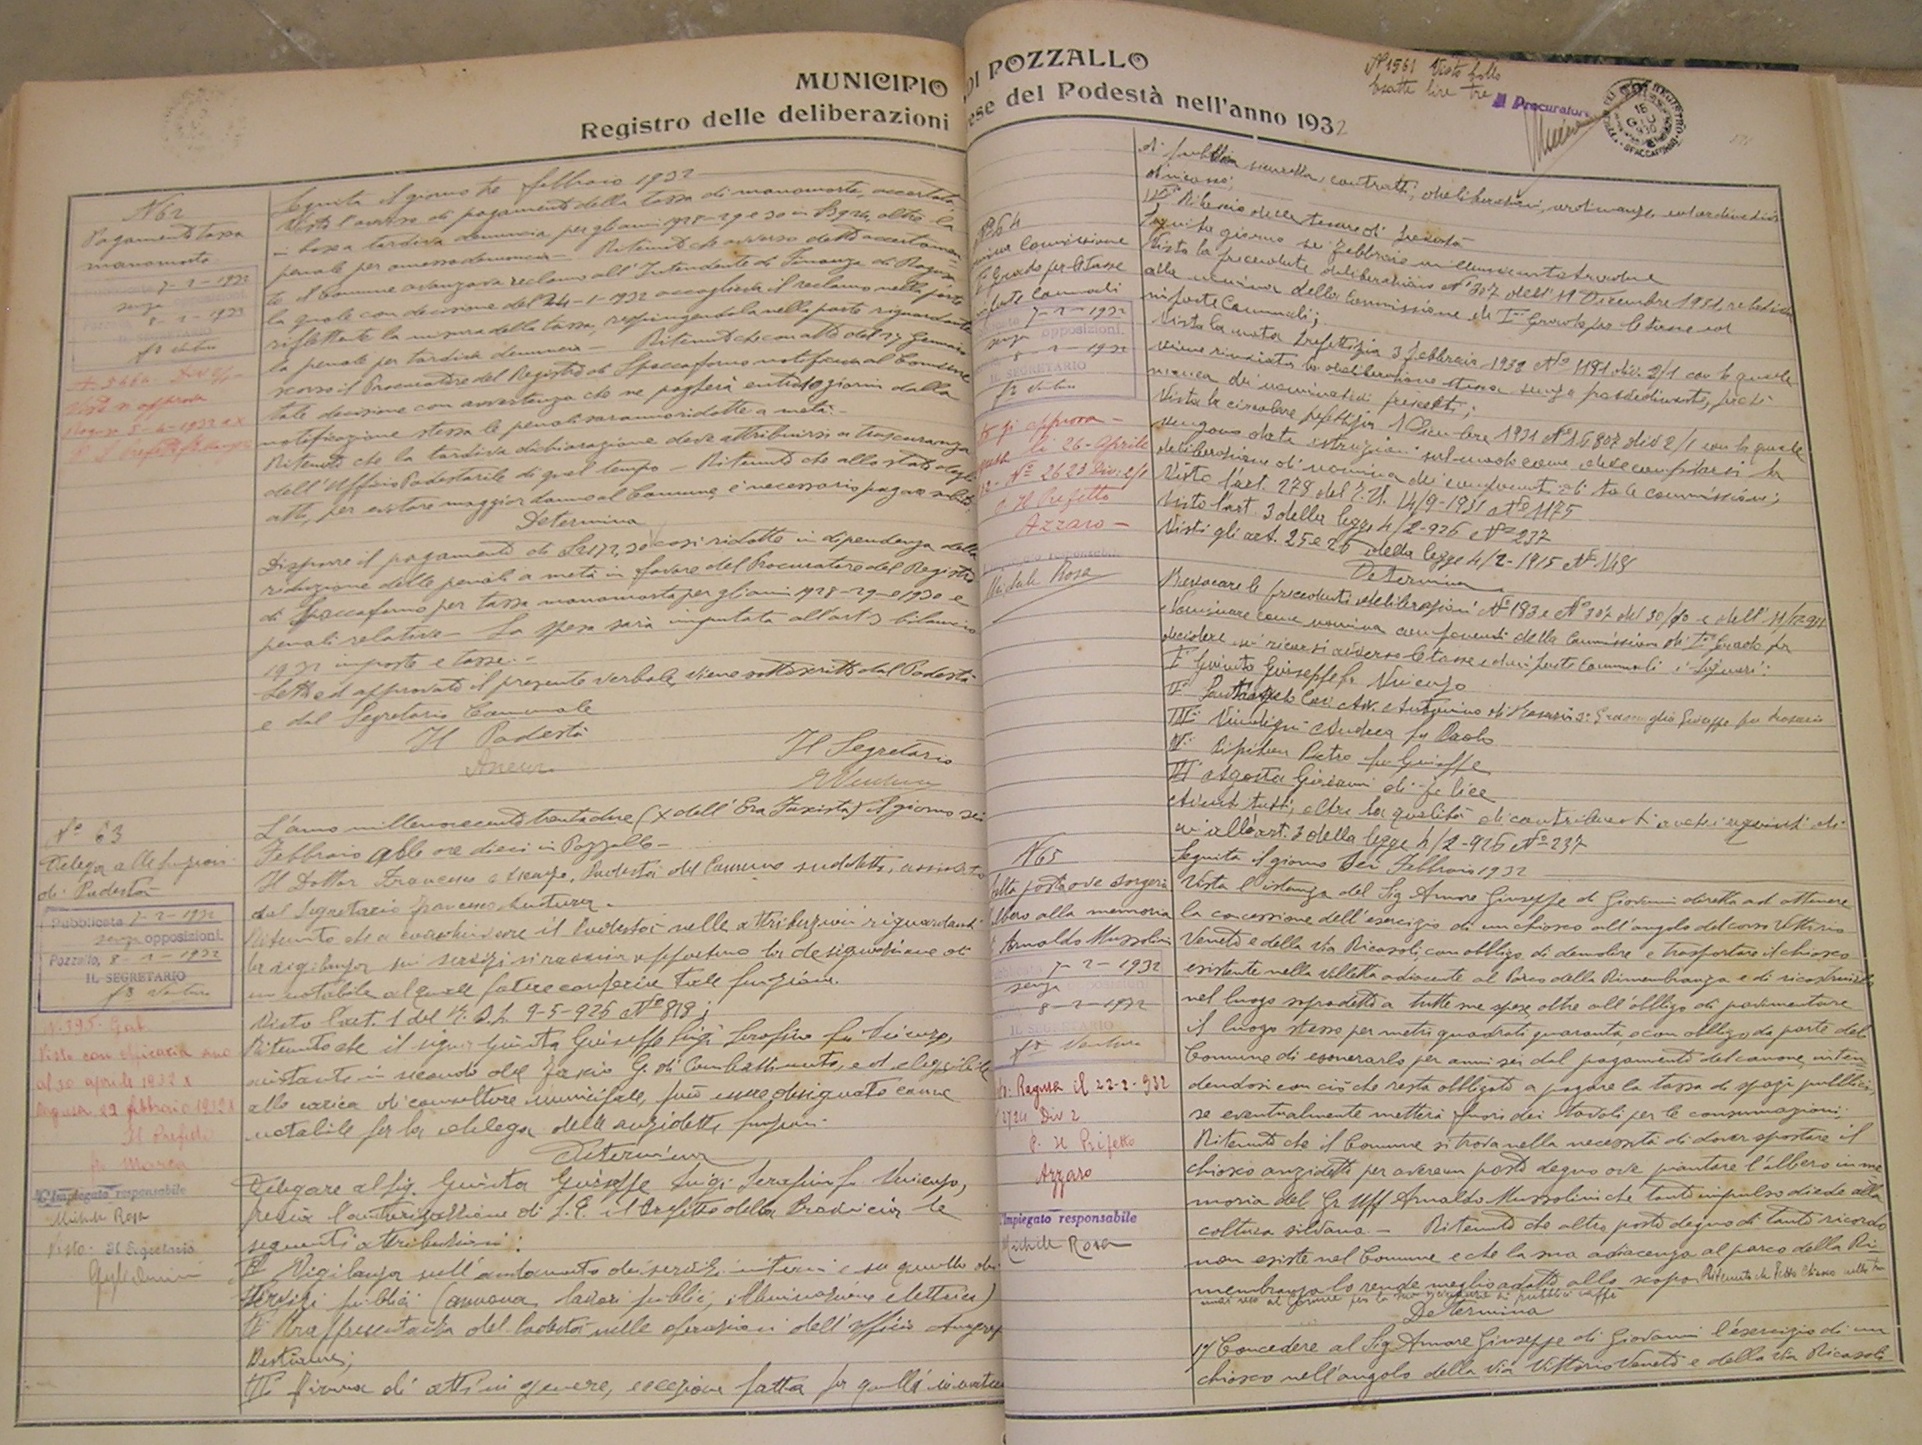 MUNICIPIO DI POZZALLO
Registro delle deliberazioni ese del Podestà nell'anno 1932
Nº 1561 Visto bollo
Esatte lire tre
Il Procuratore
N 62
Pagamento tassa
manomorta
7-2-1932
senza
8-2-1932
IL SEGRETARIO
Visto si approva
Seguita il giorno tre febbraio 1932
Visto l'avviso di pagamento della tassa di manomorta, accertata
in base a tardiva denuncia, per gli anni 1928-29 e 30 in oltre la
penale per omessa denuncia - Ritenuto che avverso detto accertamen
to il Comune avanzava reclamo all'Intendente di Finanza di Ragusa
la quale con decisione del 24-1-1932 accoglieva il reclamo nella parte
riflettente la misura della tassa, respingendola nella parte riguardante
la penale per tardiva denuncia - Ritenuto che con atto del 27 Gennaio
scorso il Procuratore del Registro di Spaccaforno notificava al Comune
tale decisione con avvertenza che se pagherà entro 10 giorni dalla
notificazione stessa le penali saranno ridotte a metà -
Ritenuto che la tardiva dichiarazione deve attribuirsi a trascuranza
dell'Ufficio Podestarile di quel tempo - Ritenuto che allo stato degli
atti, per evitare maggior danno al Comune, è necessario pagare subito
Determina
Disporre il pagamento di così ridotte in dipendenza della
riduzione delle penali a metà in favore del Procuratore del Registro
di Spaccaforno per tassa manomorta per gli anni 1928-29 e 1930 e
penali relative - La spesa sarà imputata all'art 3 bilancio
1932 imposte e tasse -
Letto ed approvato il presente verbale, viene sottoscritto dal Podestà
e dal Segretario Comunale
Il Podestà
Il Segretario
Nº 63
Delega alle funzioni
di Podestà
Pubblicata 7-2-1932
senza opposizioni.
Pozzallo, 8-2-1932
IL SEGRETARIO
f° Ventura
N. 395. Gab
Visto con efficacia sino
al 30 aprile 1932 X
Ragusa, 22 febbraio 1932 X
Il Prefetto
L'Impiegato responsabile
Michele Rosa
Visto: Il Segretario
L'anno millenovecentotrentadue (X dell'Era Fascista) il giorno sei
Febbraio alle ore dieci in Pozzallo -
Il Dottor Francesco Podestà del Comune suddetto, assistito
dal Segretario Francesco Ventura.
Ritenuto che a coadiuvare il Podestà nelle attribuzioni riguardanti
la vigilanza sui servizi si ravvisa opportuno la designazione di
un notabile al quale potere conferire tale funzione.
Visto l'art. 1 del R. D. L. 9-5-926 Nº 818;
Ritenuto che il signor Giunta Giuseppe Luigi Serafino fu Vincenzo,
alla carica di consultore municipale, può essere designato come
notabile per la delega delle anzidette funzioni.
Determina
Delegare al Sig. Giunta Giuseppe Luigi Serafino fu Vincenzo,
previa l'autorizzazione di S. E. il Prefetto della Provincia le
seguenti attribuzioni:
I° Vigilanza sull'andamento dei servizi interni e su quello dei
servizi pubblici (annona, lavori pubblici, illuminazione elettrica)
II° Rappresentanza del Podestà nelle operazioni dell'ufficio Anagrafe
Bestiame;
III° firma di atti in genere, eccezione fatta per quelli
di pubblici contratti, deliberazioni, ordinanze, ed ordinativi
d'incasso;
IV° Rilascio delle tessere di povertà
Nº 64
Commissione
I° Grado per le tasse
imposte comunali
7-2-1932
senza opposizioni.
8-2-1932
IL SEGRETARIO
f° Ventura
si approva
li 26 Aprile
Nº 2623 Div. 2/1
Il Prefetto
Azzaro
Michele Rosa
Seguita giorno sei Febbraio millenovecentotrentadue
Vista la precedente deliberazione Nº 307 dell'11 Dicembre 1931, relativa
alla nomina della Commissione di I° Grado per le tasse ed
imposte Comunali;
Vista la nota Prefettizia 3 febbraio 1932 Nº 1181 div. 2/1 con la quale
viene rinviata la deliberazione stessa senza provvedimento, perchè
manca dei nominativi prescelti;
Vista la circolare prefettizia Dicembre 1931 Nº 16807 div 2/1 con la quale
vengono date istruzioni sul modo come deve compilarsi la
deliberazione di nomina dei componenti di tale commissione;
Visto l'art. 278 del T.U. 14/9-1931 Nº 1175
Visto l'art. 3 della legge 4/2-926 Nº 237
Visti gli art. 25 e 26 della legge 4/2-1915 Nº 148
Determina
Revocare le precedenti deliberazioni Nº 183 e Nº 307 del 30/10 e dell'11/12-931
e Nominare come nomina componenti della Commissione di I° Grado per
decidere sui ricorsi avverso le tasse ed imposte Comunali i Signori:
I° Giunta Giuseppe fu Vincenzo
III° Andrea fu Paolo
V° Pietro fu Giuseppe
VI° Agosta Giovanni di Felice
aventi tutti, oltre la qualità di contribuenti anche i requisiti di
cui all'art. 3 della legge 4/2-926 Nº 237
N 65
posto ove sorgerà
albero alla memoria
Arnaldo Mussolini
7-2-1932
senza opposizioni
8-2-1932
IL SEGRETARIO
f° Ventura
Ragusa il 22-2-932
Div 2
P. Il Prefetto
Azzaro
L'Impiegato responsabile
Michele Rosa
Seguita il giorno Sei Febbraio 1932
Vista l'istanza del Sig Amore Giuseppe di Giovanni diretta ad ottenere
la concessione dell'esercizio di un chiosco all'angolo del corso Vittorio
Veneto e della Via Ricasoli, con obbligo di demolire e trasportare il chiosco
esistente nella villetta adiacente al Parco della Rimembranza e di ricostruirlo
nel luogo sopradetto a tutte sue spese oltre all'obbligo di pavimentare
il luogo stesso per metri quadrati quaranta, e con obbligo da parte del
Comune di esonerarlo per anni sei dal pagamento del canone, inten
dendosi con ciò che resta obbligato a pagare la tassa di spazi pubblici,
se eventualmente metterà fuori dei tavoli per le consumazioni
Ritenuto che il Comune si trova nella necessità di dover spostare il
chiosco anzidetto per avere un posto degno ove piantare l'albero in me
moria del Gr. Uff. Arnaldo Mussolini che tanto impulso diede alla
coltura silvana - Ritenuto che altro posto degno di tanto ricordo
non esiste nel Comune e che la sua adiacenza al parco della Ri
membranza lo rende meglio adatto allo scopo Ritenuto che detto chiosco
Determina
1º) Concedere al Sig Amore Giuseppe di Giovanni l'esercizio di un
chiosco nell'angolo della Via Vittorio Veneto e della Via Ricasoli